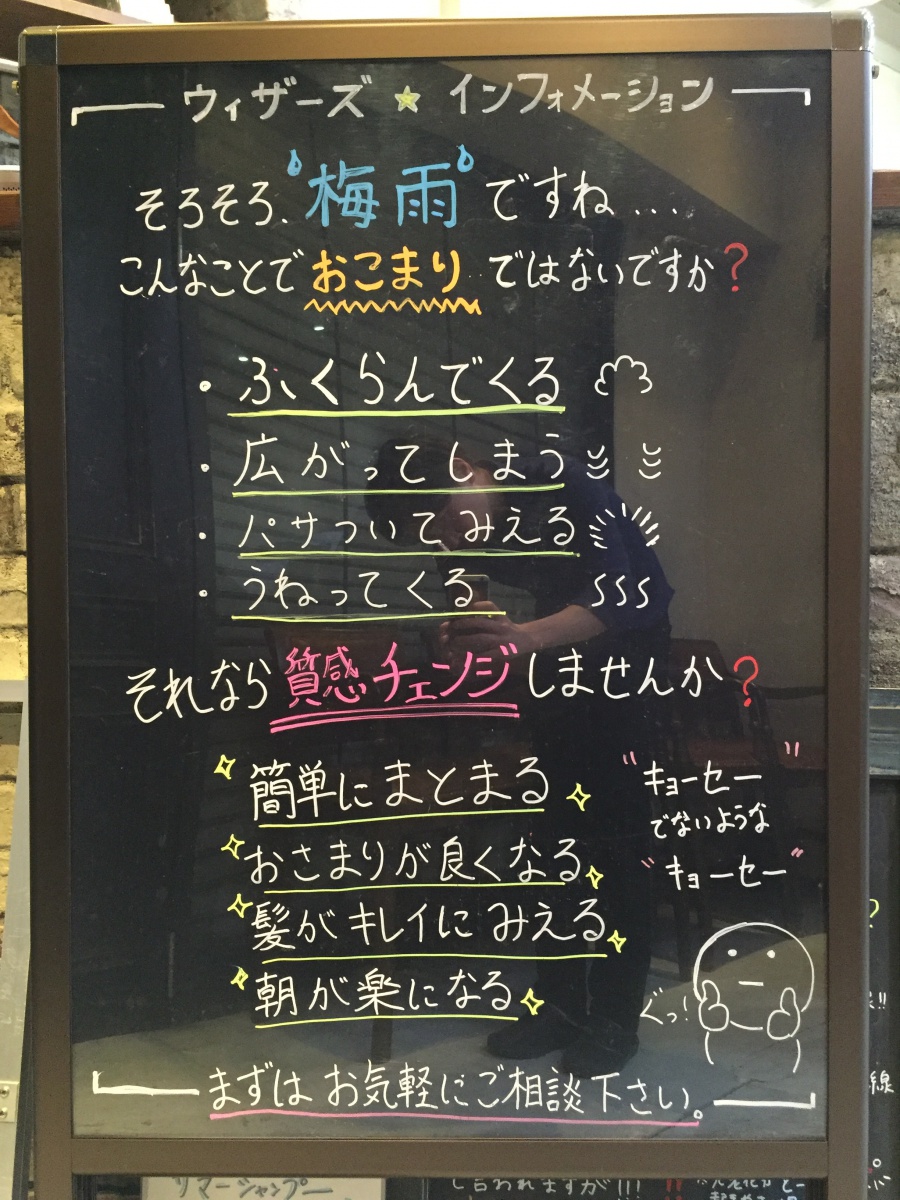 ウィザーズ ☆ インフォメーション
そろそろ、梅雨ですね...
こんなことでおこまりではないですか?
・ふくらんでくる
・広がってしまう
・パサついてみえる
・うねってくる
それなら質感チェンジしませんか?
簡単にまとまる
おさまりが良くなる
髪がキレイにみえる
朝が楽になる
"キョーセー"
でないような
"キョーセー"
ぐっ!
まずはお気軽にご相談下さい。
線
リマーシャンプー
言われますが!!!